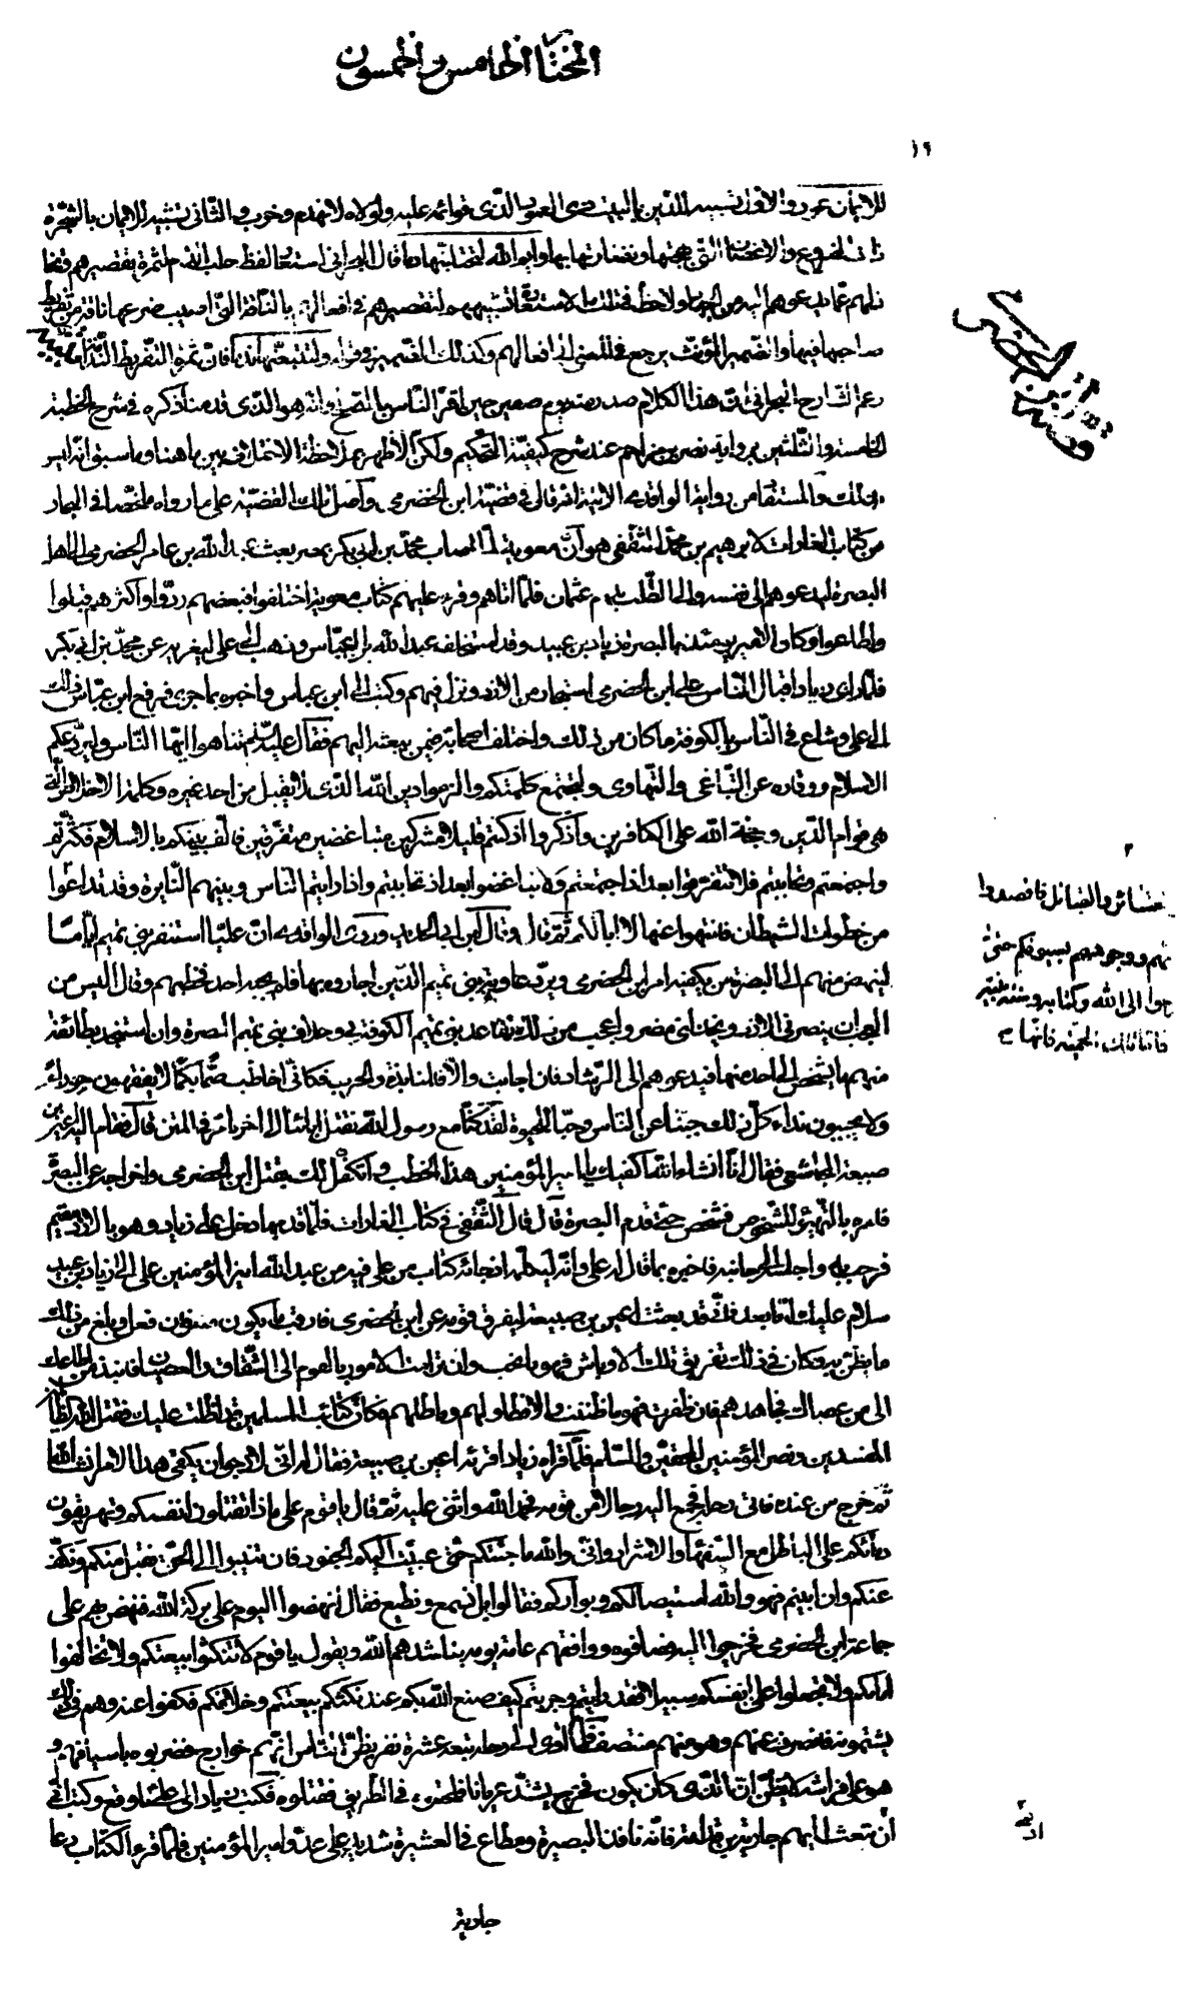 المختار الخامس والخمسون
١٩
للايمان عود والاول تشبيه للدين بالبيت ذي العمود الذى قوائمه عليه ولولاه لانهدم وخرب والثانى تشبيه للايمان بالشجرة
ذات الفروع والاغصان التى بهجتها ونضارتها بها وايم الله لتحتلبنها دما قال البحرانى استعار لفظ حلب الدم لثمرة تقصيرهم وتخا
ذلهم عما يدعوهم اليه من الجهاد ولاحظ فى تلك الاستعارة تشبيههم لتقصيرهم فى افعالهم بالناقة التى اصيب ضرعها من تفريط
صاحبها فيها والضمير المؤنث يرجع فى المعنى الى افعالهم وكذلك الضمير فى قوله ولتتبعنها ندما فان ثمرة التفريط الندامة
زعم الشارح البحرانى ان هذا الكلام صدر منه يوم صفين حين اقر الناس بالصلح وانه هو الذى قدمنا ذكره فى شرح الخطبة
الخامسة والثلثين برواية نصر بن مزاحم عند شرح كيفية التحكيم ولكن الاظهر بملاحظة الاختلاف بين ما هنا وما سبق انه ليس
بذلك والمستفاد من رواية الواقدى الاتية انه قاله فى قضية ابن الحضرمى واصل تلك القضية على ما رواه ملخصا فى البحار
من كتاب الغارات لابرهيم بن محمد الثقفى هو ان معوية لما اصاب محمد بن ابى بكر بمصر بعث عبد الله بن عامر الحضرمى الى اهل
البصرة ليدعوهم الى نفسه والى الطلب بدم عثمان فلما اتاهم وقرء عليهم كتاب معوية اختلفوا فبعضهم ردوا واكثرهم قبلوا
واطاعوا وكان الامير يومئذ بالبصرة زياد بن عبيد وقد استخلفه عبد الله بن العباس وذهب الى على ليعزيه عن محمد بن ابى بكر
فلما راى زياد اقبال الناس على ابن الحضرمى استجار من الازد ونزل فيهم وكتب الى ابن عباس واخبره بما جرى فرفع ابن عباس ذلك
الى على وشاع فى الناس بالكوفة ما كان من ذلك واختلف اصحابه فيمن يبعثه اليهم فقال عليه السلم تناهوا ايها الناس وليردعكم
الاسلام ووقاره عن التباغى والتهاوى ولتجتمع كلمتكم والزموا دين الله الذى لا يقبل من احد غيره وكلمة الاخلاص التى
هى قوام الدين وحجة الله على الكافرين واذكروا اذ كنتم قليلا مشركين متباغضين متفرقين فالف بينكم بالاسلام فكثرتم
واجتمعتم وتحاببتم فلا تتفرقوا بعد اذ اجتمعتم ولا تباغضوا بعد اذ تحاببتم واذا رايتم الناس وبينهم النايرة وقد تداعوا
من خطوات الشيطان فانتهوا عنها لا ابا لكم ثم قال وقال ابن ابى الحديد وروى الواقدى ان عليا استنفر بنى تميم اياما
لينهض منهم الى البصرة من يكفيه امر ابن الحضرمى ويرد عادية بنى تميم الذين اجاروه بها فلم يجبه احد فخطبهم وقال اليس من
العجب ان ينصرنى الازد ويخذلنى مضر واعجب من ذلك تقاعد بنى تميم الكوفة بى وخلاف بنى تميم البصرة وان استنجد بطائفة
منهم ما يشخص الى احد منها فيدعوهم الى الرشاد فان اجابت والا فالمنابذة والحرب فكانى اخاطب صما بكما لا يفقهون حوارا
ولا يجيبون نداء كل ذلك جبنا عن الناس وحبا للحيوة لقد كنا مع رسول الله نقتل ابائنا الى اخر ما مر فى المتن قال فقام اليه اعين بن
صبيعة المجاشعى فقال انا انشاء الله اكفيك يا امير المؤمنين هذا الخطب واتكفل لك بقتل ابن الحضرمى واخراجه عن البصرة
فامره بالتهيؤ للشخوص فشخص حتى قدم البصرة قال قال الثقفى فى كتاب الغارات فلما قدمها دخل على زياد وهو بالازد مقيم
فرحب به واجلسه الى جانبه فاخبره بما قال له على وانه ليكلمه اذ جائه كتاب من على فيه من عبد الله امير المؤمنين على الى زياد بن عبيد
سلام عليك اما بعد فانى قد بعثت اعين بن صبيعة ليفرق قومه عن ابن الحضرمى فارقب ما يكون منه فان فعل وبلغ من ذلك
ما يظن به وكان فى ذلك تفريق تلك الاوباش فهو ما نحب وان ترامت الامور بالقوم الى الشقاق والعصيان فانبذ من اطاعك
الى من عصاك فجاهدهم فان ظفرت فهو ما ظننت والا فطاولهم وماطلهم فكان كتائب المسلمين قد اطلت عليك فقتل الله الظالمين
المفسدين ونصر المؤمنين المحقين والسلم فلما قراه زياد اقرئه اعين بن صبيعة فقال له انى لارجو ان يكفى هذا الامر انشاء الله
ثم خرج من عنده فاتى رحله فجمع اليه رجالا من قومه فحمد الله واثنى عليه ثم قال يا قوم على ماذا تقتلون انفسكم وتهريقون
دمائكم على الباطل مع السفهاء والاشرار وانى والله ما جئتكم حتى عبيت اليكم الجنود فان تنيبوا الى الحق نقبل منكم ونكف
عنكم وان ابيتم فهو والله استيصالكم وبواركم فقالوا بل نسمع ونطيع فقال انهضوا اليوم على بركة الله فنهض بهم على
جماعة ابن الحضرمى فخرجوا اليه فصافوه وواقفهم عامة يومه يناشدهم الله ويقول يا قوم لا تنكثوا بيعتكم ولا تخالفوا
امامكم ولا تجعلوا على انفسكم سبيلا فقد رايتم وجربتم كيف صنع الله بكم عند نكثكم بيعتكم وخلافكم فكفوا عنه وهم فى ذلك
يشتمونه فانصرف عنهم وهو منهم منتصف فلما اوى الى رحله تبعه عشرة نفر يظن الناس انهم خوارج فضربوه باسيافهم و
هو على فراشه لا يظن ان الذى كان يكون فخرج يشتد عريانا فلحقوه فى الطريق فقتلوه فكتب زياد الى على ما وقع وكتب انى
ان تبعث اليهم جارية بن قدامة فانه نافذ البصيرة ومطاع فى العشيرة شديد على عدو امير المؤمنين فلما قرء الكتاب دعا
ابن الحضرمى
٢
عشائر والقبائل فاقصدوا
مهم ووجوههم بسيوفكم حتى
الى الله وكتابه وسنة نبيه
جارية